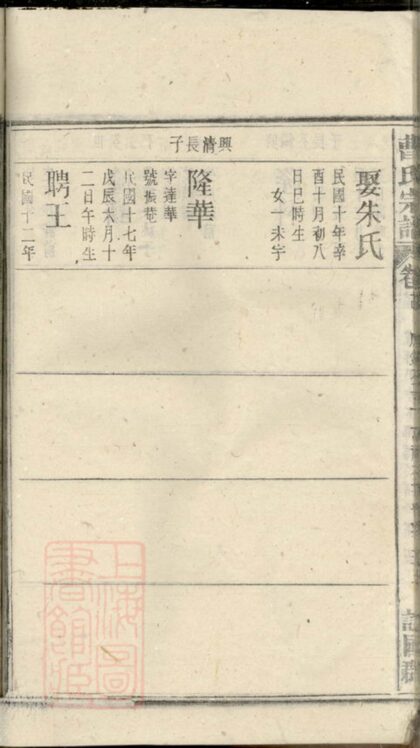 曹氏宗譜
卷
譙國郡
娶朱氏
民國十年辛
酉十月初八
日巳時生
女一未字
興清長子
隆華
字達華
號振巷
民國十七年
戊辰六月十
二日午時生
聘王
民國十二年
上海圖
書館藏